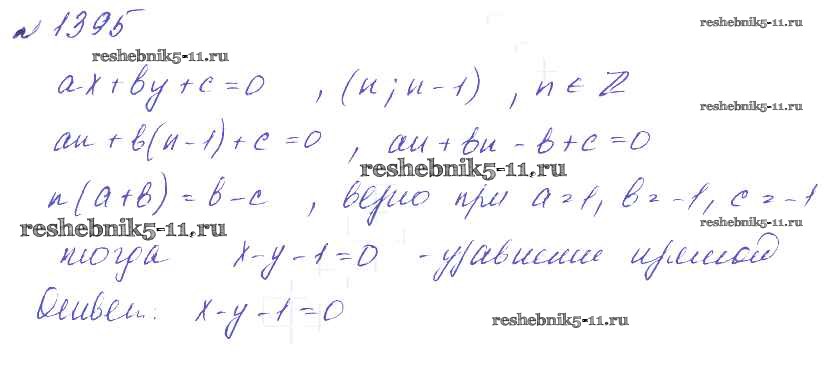 № 1395
reshebnik5-11.ru
reshebnik5-11.ru
ax + by + c = 0 , (n; n-1) , n ∈ Z
reshebnik5-11.ru
an + b(n-1) + c = 0 , an + bn - b + c = 0
reshebnik5-11.ru
n(a+b) = b-c , верно при a=1, b=-1, c=-1
reshebnik5-11.ru
reshebnik5-11.ru
тогда x-y-1=0 - уравнение прямой
Ответ: x-y-1=0
reshebnik5-11.ru